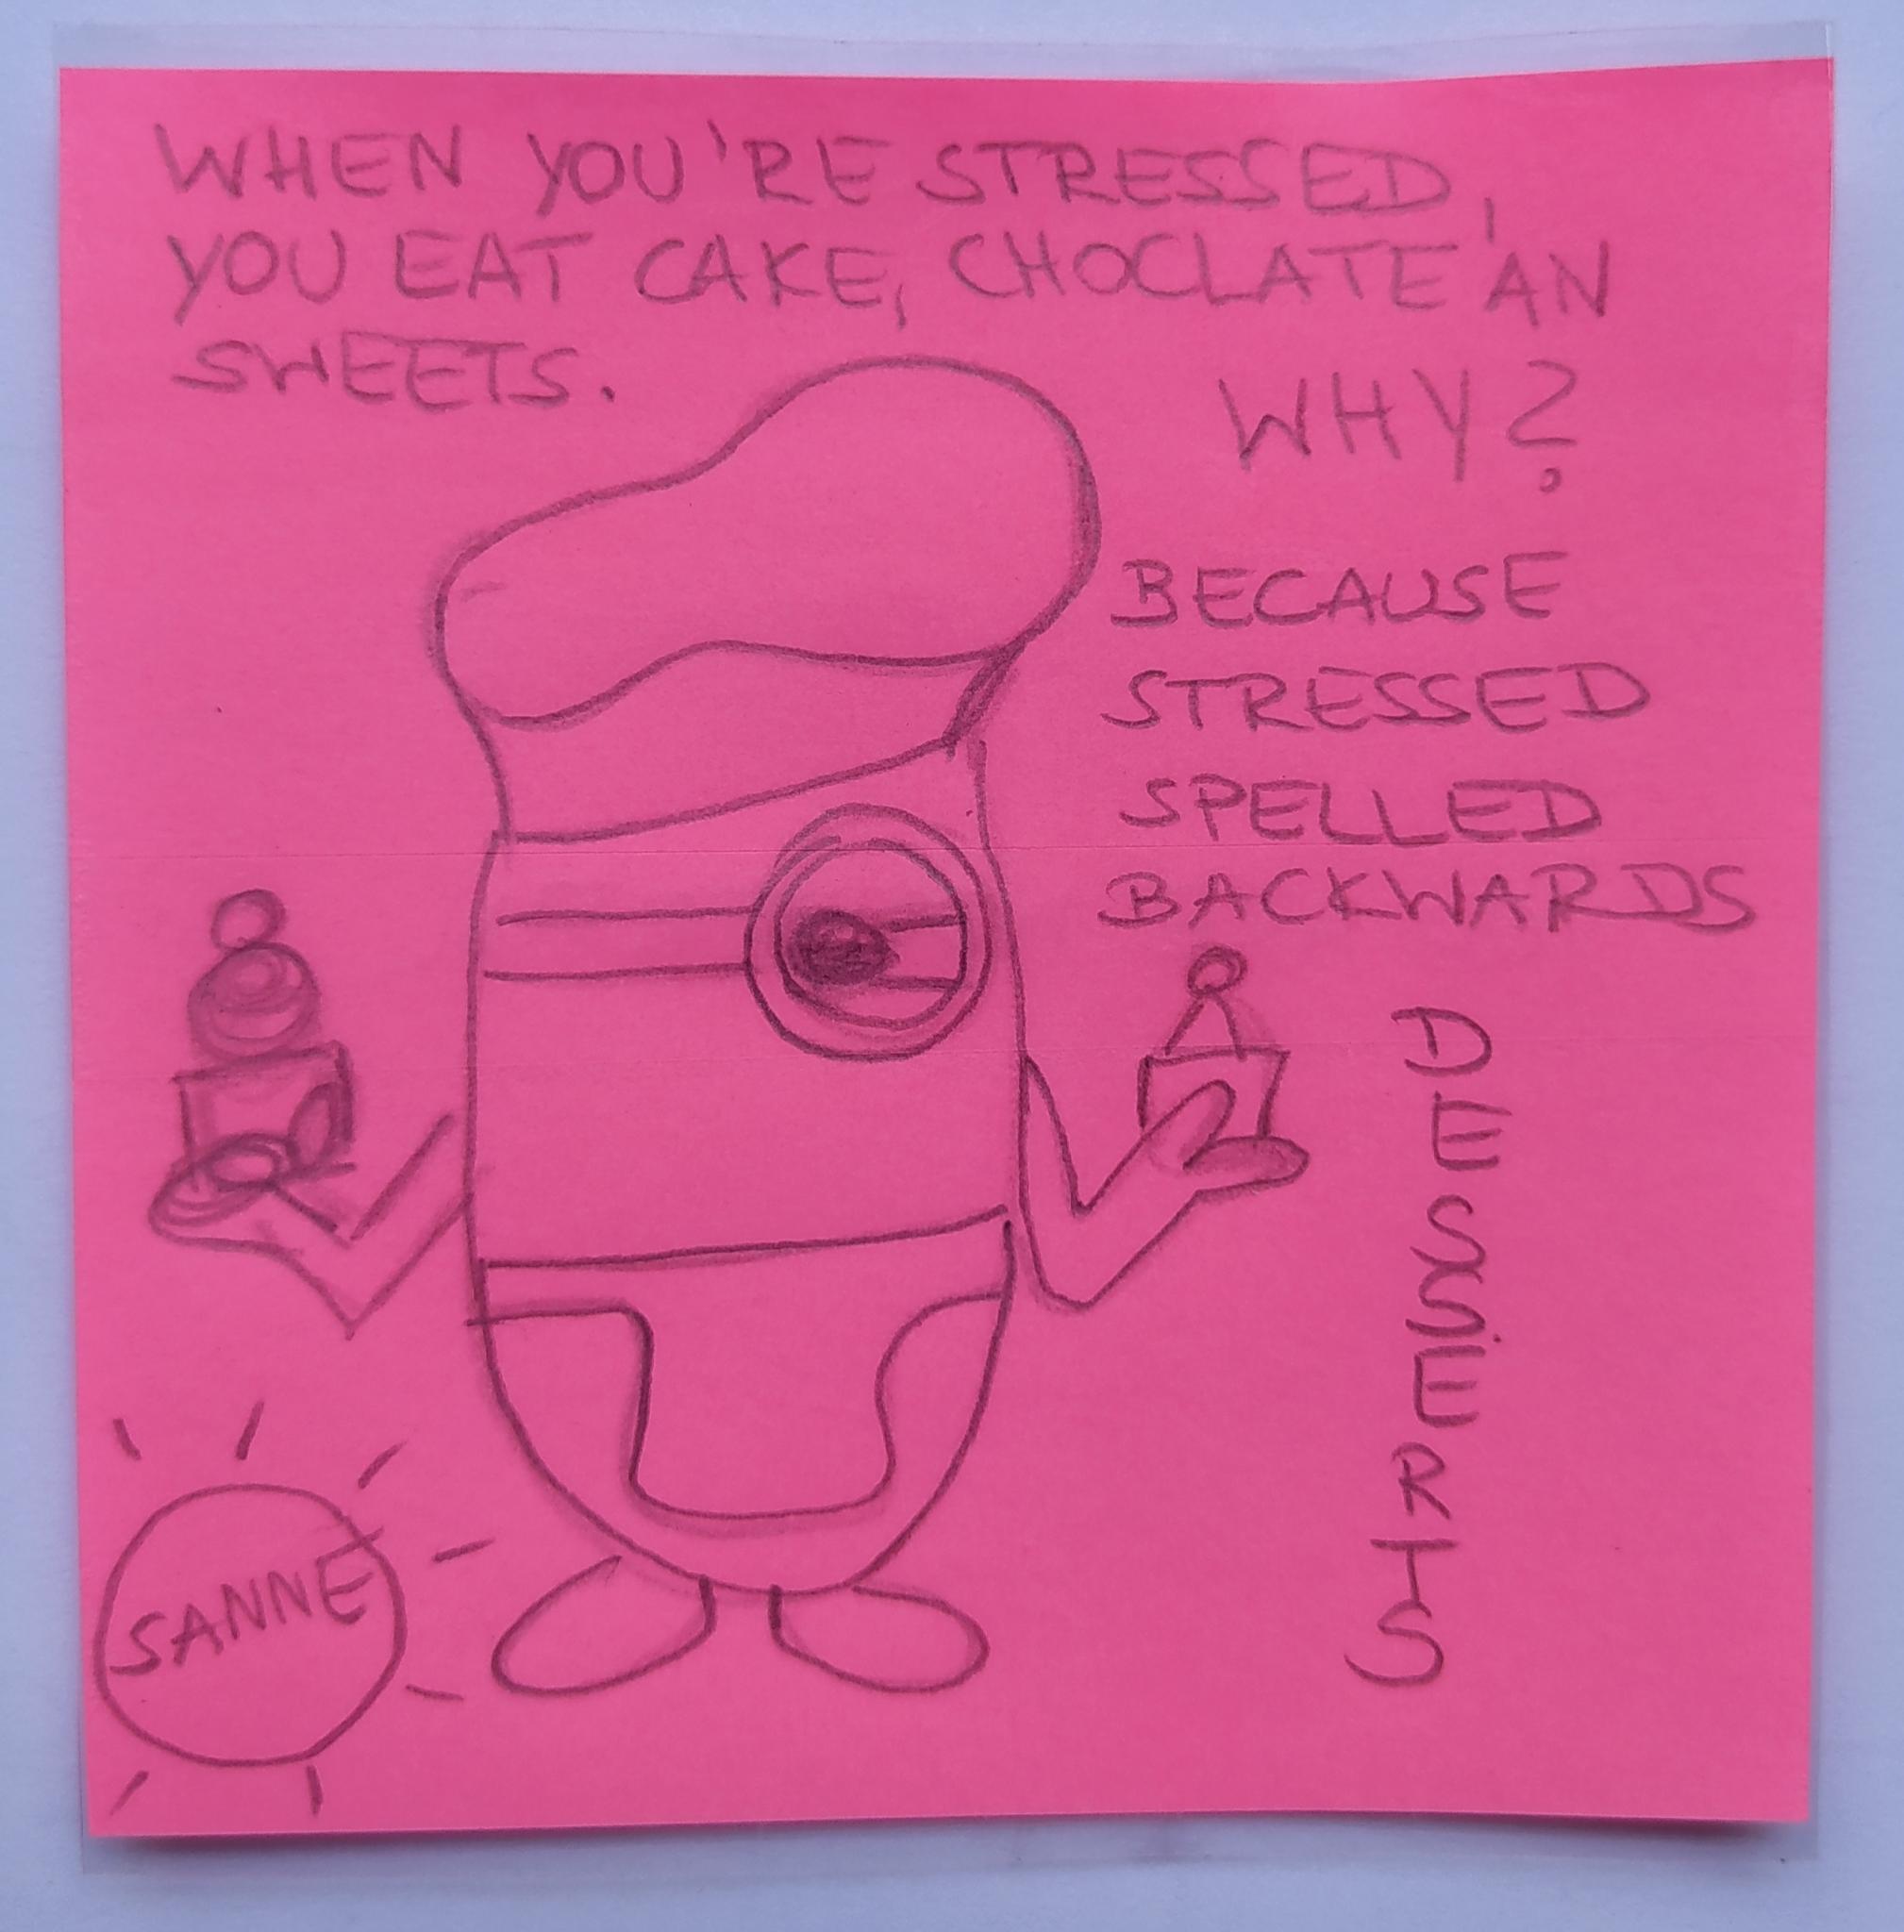 WHEN YOU'RE STRESSED,
YOU EAT CAKE, CHOCLATE AN
SWEETS.
WHY?
BECAUSE
STRESSED
SPELLED
BACKWARDS
DESSERTS
SANNE